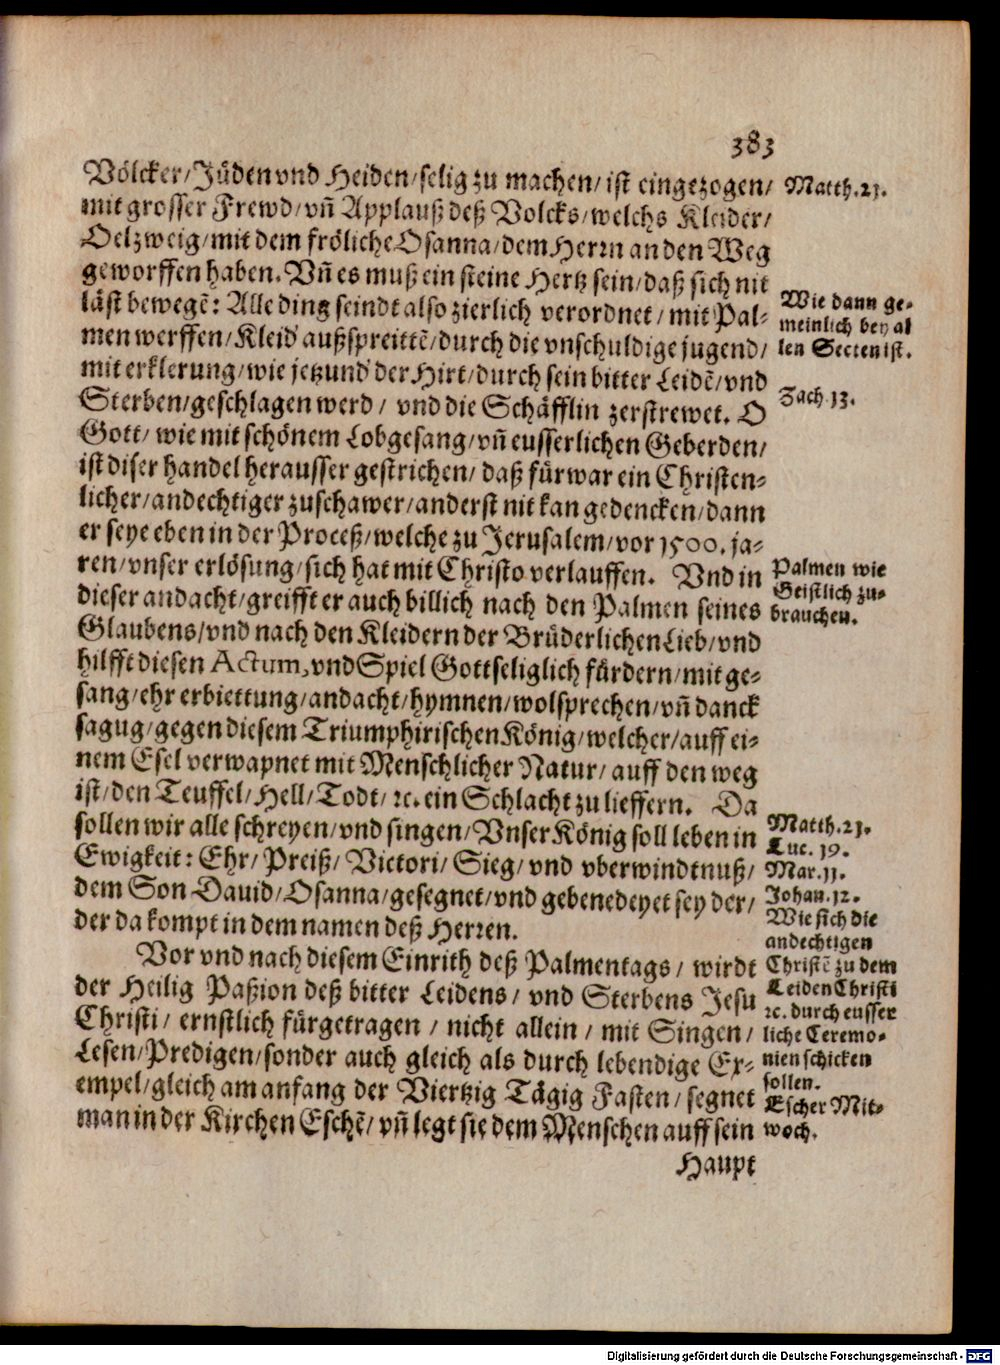 383
Völcker/Jüden vnd Heiden/selig zu machen/ist eingezogen/
mit grosser Frewd/vñ Applauß deß Volcks/welchs Kleider/
Oelzweig/mit dem fröliche Osanna/dem Herrn an den Weg
geworffen haben. Vñ es muß ein steine Hertz sein/daß sich nit
läst bewegẽ: Alle ding seindt also zierlich verordnet/mit Pal-
men werffen/Kleid außspreittẽ/durch die vnschuldige jugend/
mit erklerung/wie jetzund der Hirt/durch sein bitter Leidẽ/vnd
Sterben/geschlagen werd/ vnd die Schäfflin zerstrewet. O
Gott/ wie mit schönem Lobgesang/vñ eusserlichen Geberden/
ist diser handel herausser gestrichen/ daß fürwar ein Christen-
licher/andechtiger zuschawer/anderst nit kan gedencken/dann
er seye eben in der Proceß/welche zu Jerusalem/vor 1500. ja-
ren/vnser erlösung/sich hat mit Christo verlauffen. Vnd in
dieser andacht/greifft er auch billich nach den Palmen seines
Glaubens/vnd nach den Kleidern der Brüderlichen Lieb/vnd
hilfft diesen Actum, vnd Spiel Gottseliglich fürdern/mit ge-
sang/ehr erbiettung/andacht/hymnen/wolsprechen/vñ danck
sagug/gegen diesem Triumphirischen König/welcher/auff ei-
nem Esel verwapnet mit Menschlicher Natur/ auff den weg
ist/den Teuffel/Hell/Todt/ ꝛc. ein Schlacht zu lieffern. Da
sollen wir alle schreyen/vnd singen/Vnser König soll leben in
Ewigkeit: Ehr/ Preiß/ Victori/ Sieg/ vnd vberwindtnuß/
dem Son Dauid/Osanna/gesegnet/vnd gebenedeyet sey der/
der da kompt in dem namen deß Herren.
Vor vnd nach diesem Einrith deß Palmentags/ wirdt
der Heilig Paßion deß bitter Leidens/ vnd Sterbens Jesu
Christi/ ernstlich fürgetragen/ nicht allein/ mit Singen/
Lesen/Predigen/sonder auch gleich als durch lebendige Ex-
empel/gleich am anfang der Viertzig Tägig Fasten/ segnet
man in der Kirchen Eschẽ/ vñ legt sie dem Menschen auff sein
Haupt
Matth. 21.
Wie dann ge-
meinlich bey al
len Secten ist.
Zach. 13.
Palmen wie
Geistlich zu-
brauchen.
Matth. 21.
Luc. 19.
Mar. 11.
Johan. 12.
Wie sich die
andechtigen
Christẽ zu dem
Leiden Christi
ꝛc. durch eusser
liche Ceremo-
nien schicken
sollen.
Escher Mit-
woch.
Digitalisierung gefördert durch die Deutsche Forschungsgemeinschaft - DFG